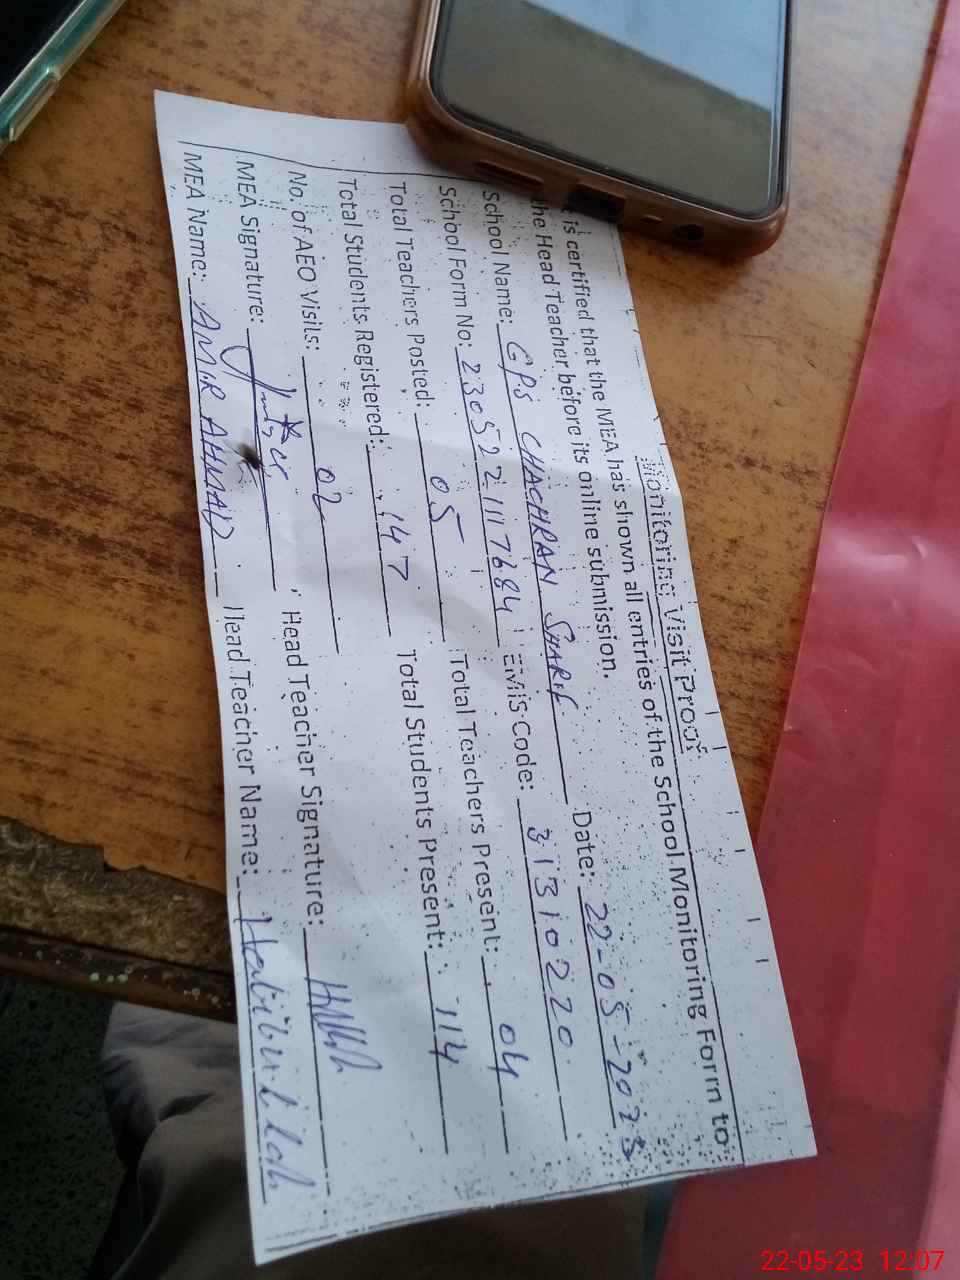 Monitoring Visit Proof
t is certified that the MEA has shown all entries of the School Monitoring Form to
the Head Teacher before its online submission.
School Name: GPS CHACHRAN SHARIF Date: 22-05-2023
School Form No: 23052211117684 EMIS Code: 31310220
Total Teachers Posted: 05 Total Teachers Present: 04
Total Students Registered: 147 Total Students Present: 114
No. of AEO Visits: 02
MEA Signature: Head Teacher Signature:
MEA Name: AMIR AHMAD Head Teacher Name: Habibullah
22-05-23 12:07